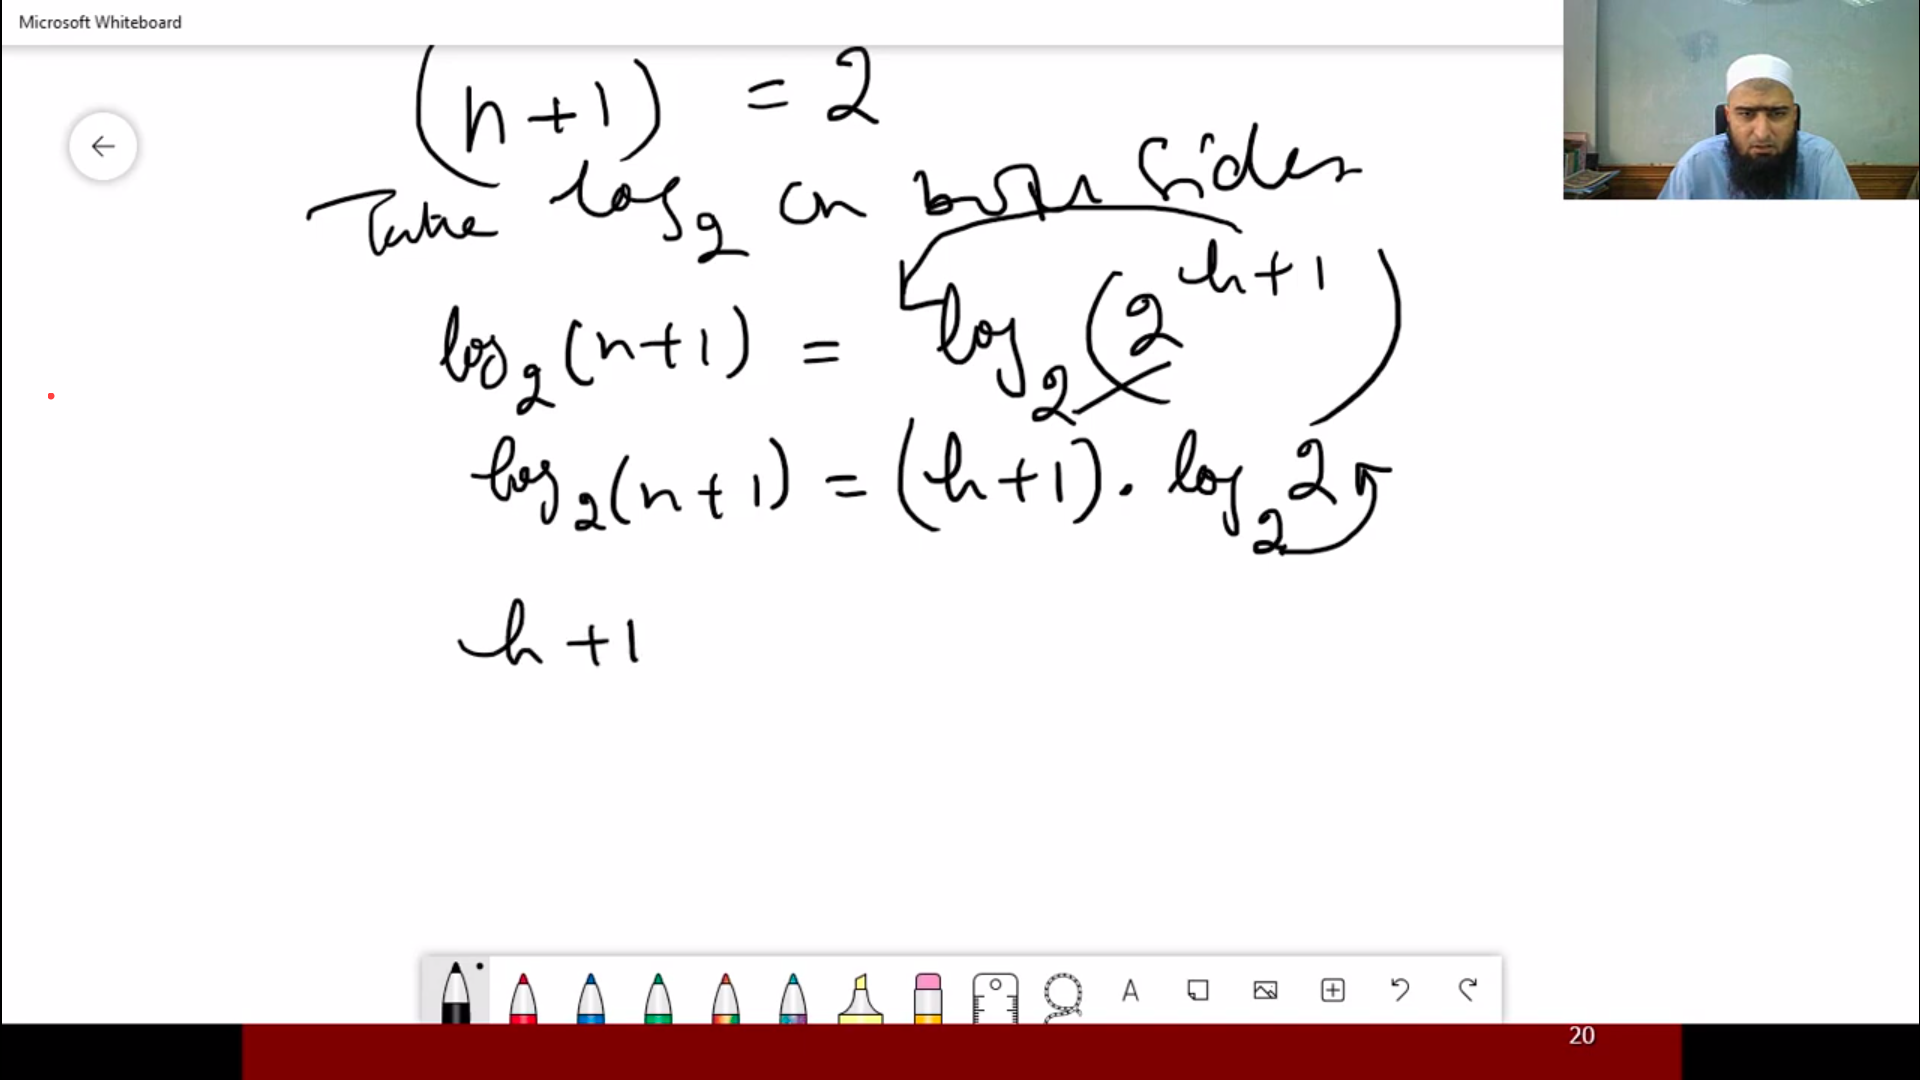 Microsoft Whiteboard
(n+1) = 2
Take log₂ on both sides
log₂(n+1) = log₂(2^(h+1))
log₂(n+1) = (h+1). log₂2
h+1
A
20